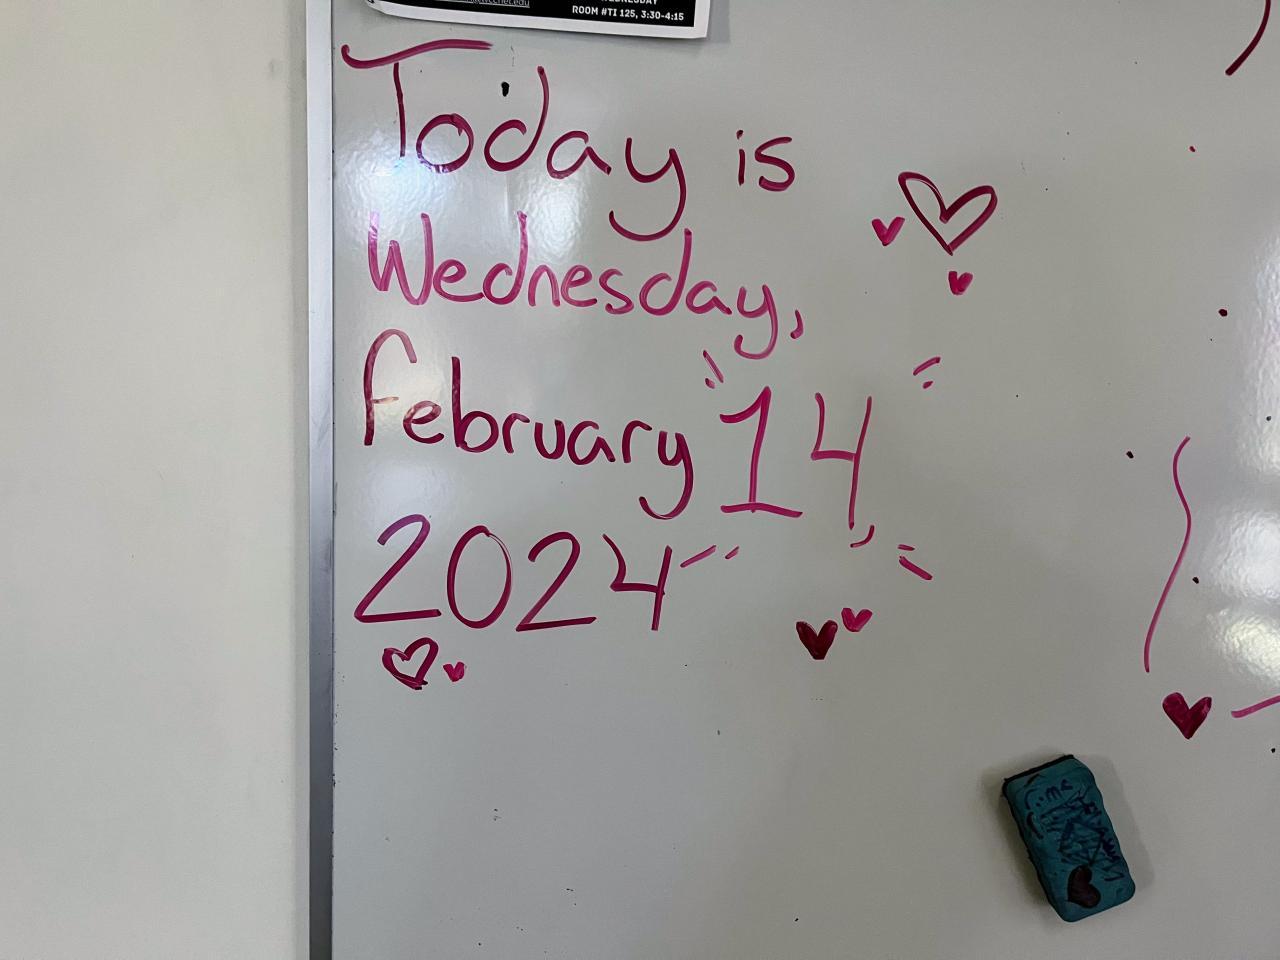 ROOM #TI 125, 3:30-4:15
Today is
Wednesday,
february 14,
2024